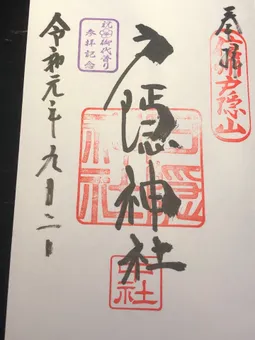 奉拝
信州戸隠山
戸隠神社
戸隠
神社
中社
御代替り
参拝記念
令和元年九月二日